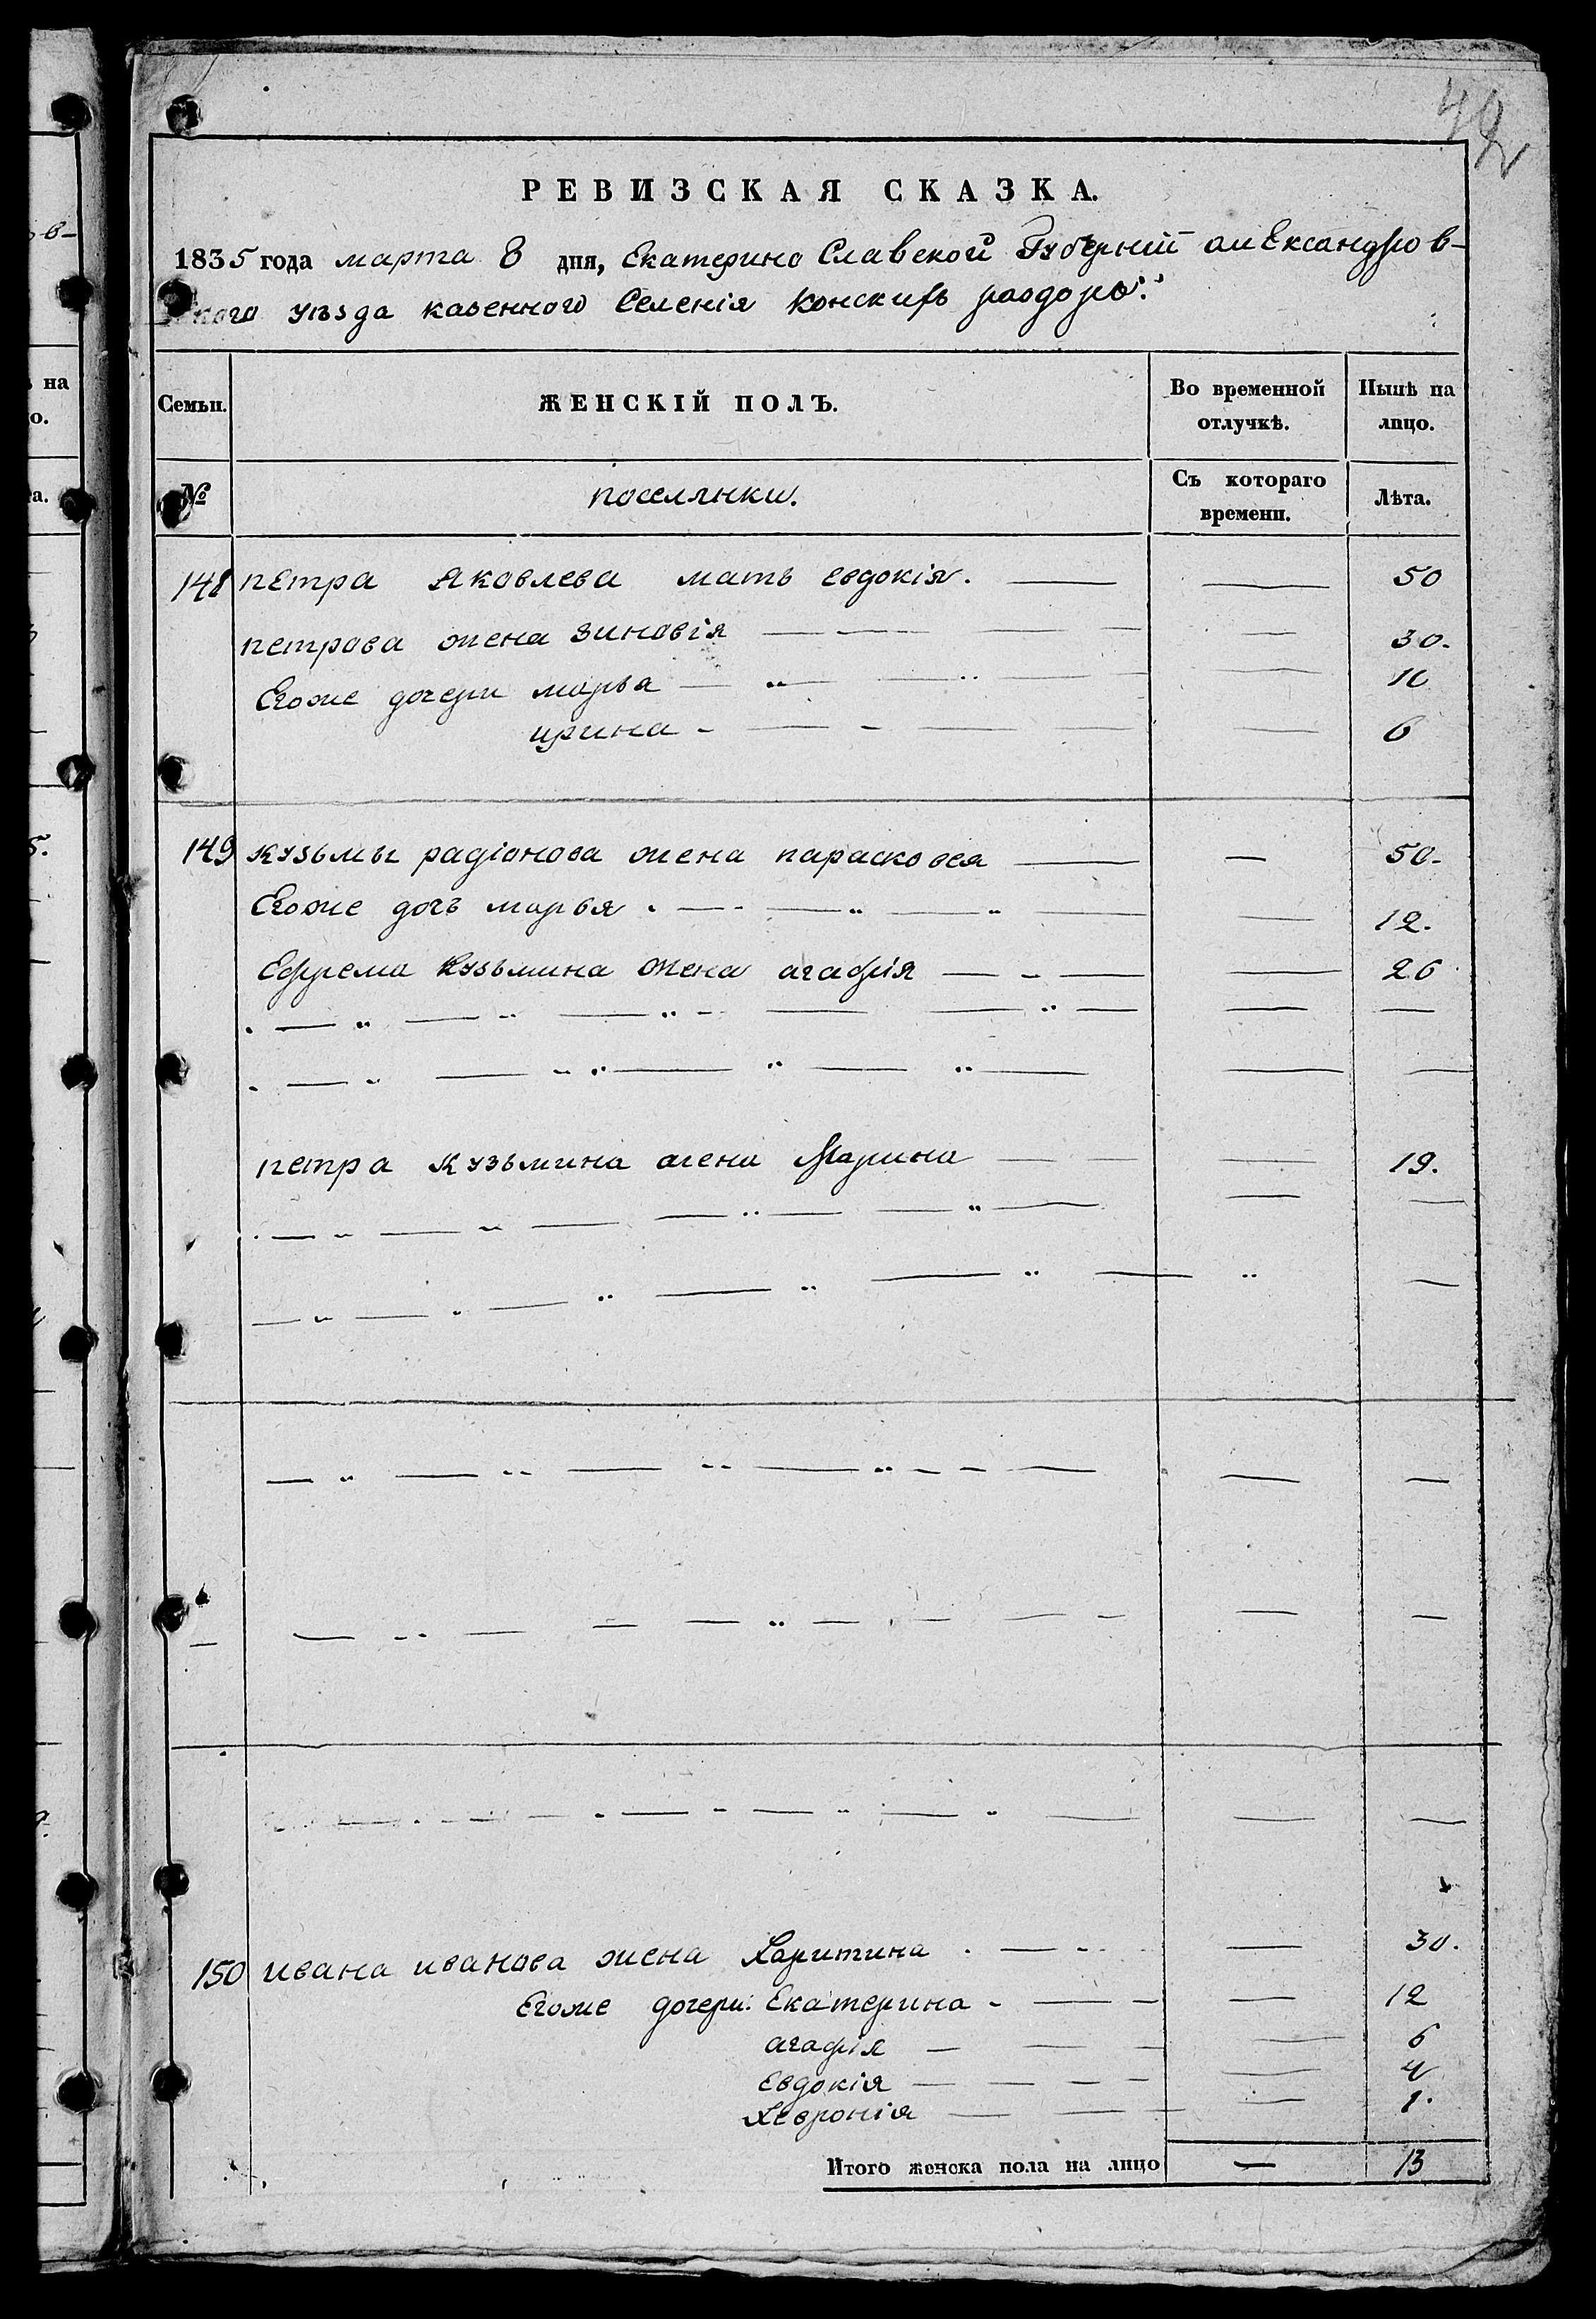 49
РЕВИЗСКАЯ СКАЗКА.
1835 года марта 8 дня, Екатерино Славской Губерніи александров-
ского уѣзда казенного Селенія Конскихъ раздоръ:
Семьи.
ЖЕНСКІЙ ПОЛЪ.
Во временной отлучкѣ.
Нынѣ на лицо.
№
поселянки.
Съ котораго времени.
Лѣта.
148 петра Яковлева мать евдокія. — — 50
петрова жена зиновія — — 30.
Егоже дочери марья — — 10
ирина — — 6
149 Кузьмы радіонова жена парасковея — — 50.
Егоже дочь марья — — 12.
Ефрема Кузьмина жена агафія — — 26
петра Кузьмина жена Марина — — 19.
150 ивана иванова жена Харитина — — 30.
Егоже дочери: Екатерина — — 12
агафія — — 6
Евдокія — — 4
Хевронія — — 1.
Итого женска пола на лицо — 13